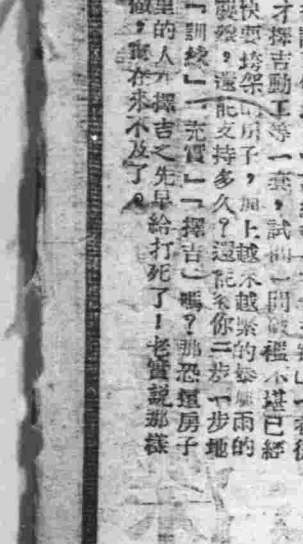 才擇吉動工等一套，試問一間破襤不堪已經
快要垮架的房子，加上越來越緊的暴風雨的
襲擊，還能支持多久？還能容你一步一步地
「訓練」「充實」「擇吉」嗎？那恐這房子
里的人在擇吉之先早給打死了！老實說那樣
做，實在來不及了。